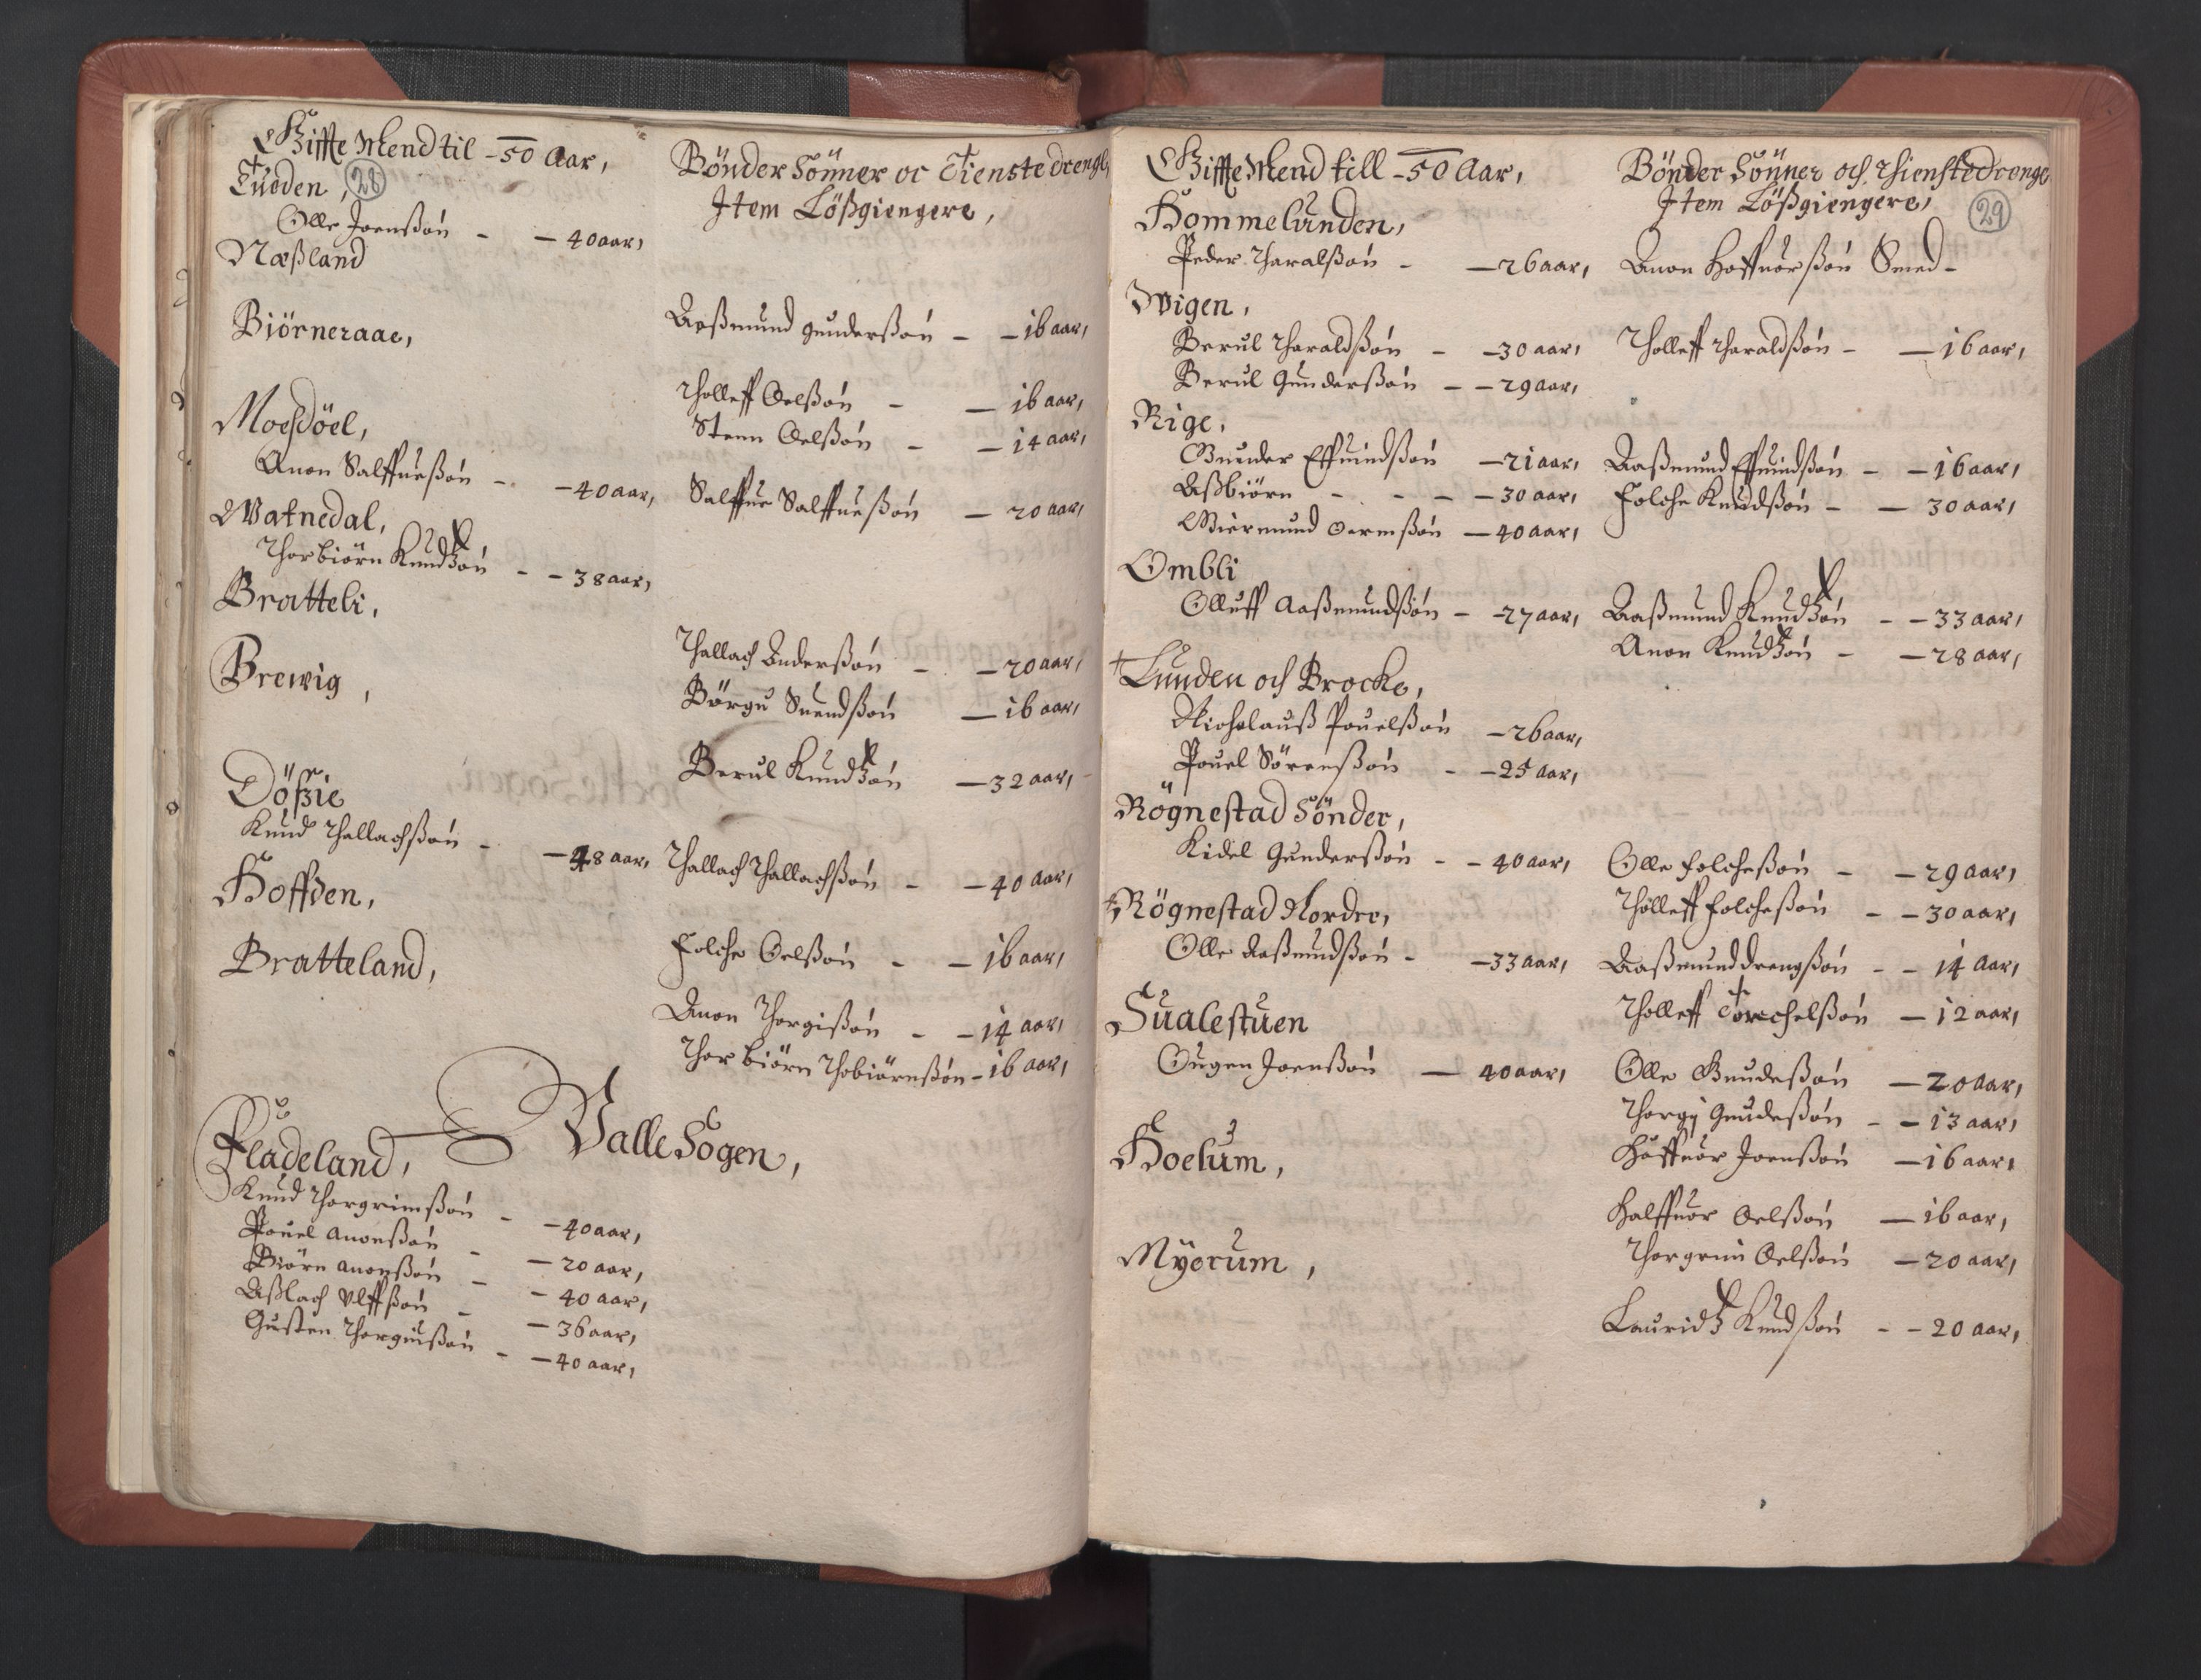 Giffte Mend til - 50 Aar,
Tueden, 28
Olle Joenßøn - - 40 aar,
Næßland
Biörneraae,
Moeßdöel,
Anon Salffueßøn - - 40 aar,
Watnedal,
Thorbiörn Knudtzøn - - 38 aar,
Bratteli,
Brewig,
Dößie
Knud Thallachßøn - - 48 aar,
Hoffden,
Bratteland,
Bönder Sönner oc Tienstedrenge
Jtem Lößgiengere,
Aaßmund gunderßøn - - 16 aar,
Tholleff Oelßøn - - 16 aar,
Stenn Oelßøn - - 14 aar,
Salffue Salffueßøn - 20 aar,
Thallach Anderßøn - - 20 aar,
Börgu Suendßøn - 16 aar,
Berul Knudtzøn - 32 aar,
Thallach Thallachßøn - - 40 aar,
Folche Oelßøn - - 16 aar,
Anon Thorgißøn - - 14 aar,
Thorbiörn Thobiörnßøn - 16 aar,
Valle Sogen,
Fladeland,
Knud Thorgrimßøn - - 40 aar,
Pouel Anonßøn - - 20 aar,
Biörn Anonßøn - - 40 aar,
Aßlach Vlffßøn - - 36 aar,
Gusten Thorgiußøn - - 40 aar,
Giffte Mend till - 50 Aar,
Hommelunden,
Peder Tharalßøn - - 26 aar,
Wigen,
Berul Tharaldßøn - - 30 aar,
Berul Gunderßøn - - 29 aar,
Rige,
Gunder Effuindßøn - 21 aar,
Aßbiörn - - - - 30 aar,
Giermund Ormßøn - 40 aar,
Ombli
Olluff Aaßmundßøn - - 27 aar,
Lunden och Brocke,
Nicholauß Pouelßøn - 26 aar,
Pouel Sörenßøn - - 25 aar,
Rögnestad Sönder,
Kidel Gunderßøn - - 40 aar,
Rögnestad Nordre,
Olle Aaßmudßøn - - 33 aar,
Sualestuen
Ougen Joenßøn - 40 aar,
Hoelum,
Myerum,
Bönder Sönner och Thienstedrenge
Jtem Lößgiengere, 29
Anon Haffuorßøn Smed -
Tholleff Tharaldßøn - - 16 aar,
Aaßmund Effuindßøn - - 16 aar,
Folche Knudßøn - - 30 aar,
Aaßmund Knudtzøn - - 33 aar,
Anon Knudtzøn - - 28 aar,
Olle Folcheßøn - - 29 aar,
Tholleff Folcheßøn - - 30 aar,
Aaßmund drengßøn - - 14 Aar,
Tholleff Torchelßøn - 12 aar,
Olle Gundeßøn - 20 aar,
Thorgij Gundeßøn - - 13 aar,
Haffuor Joenßøn - 16 aar,
Halffuor Oelßøn - 16 aar,
Thorgrim Oelßøn - 20 aar,
Lauridtz Knudßøn - - 20 aar,